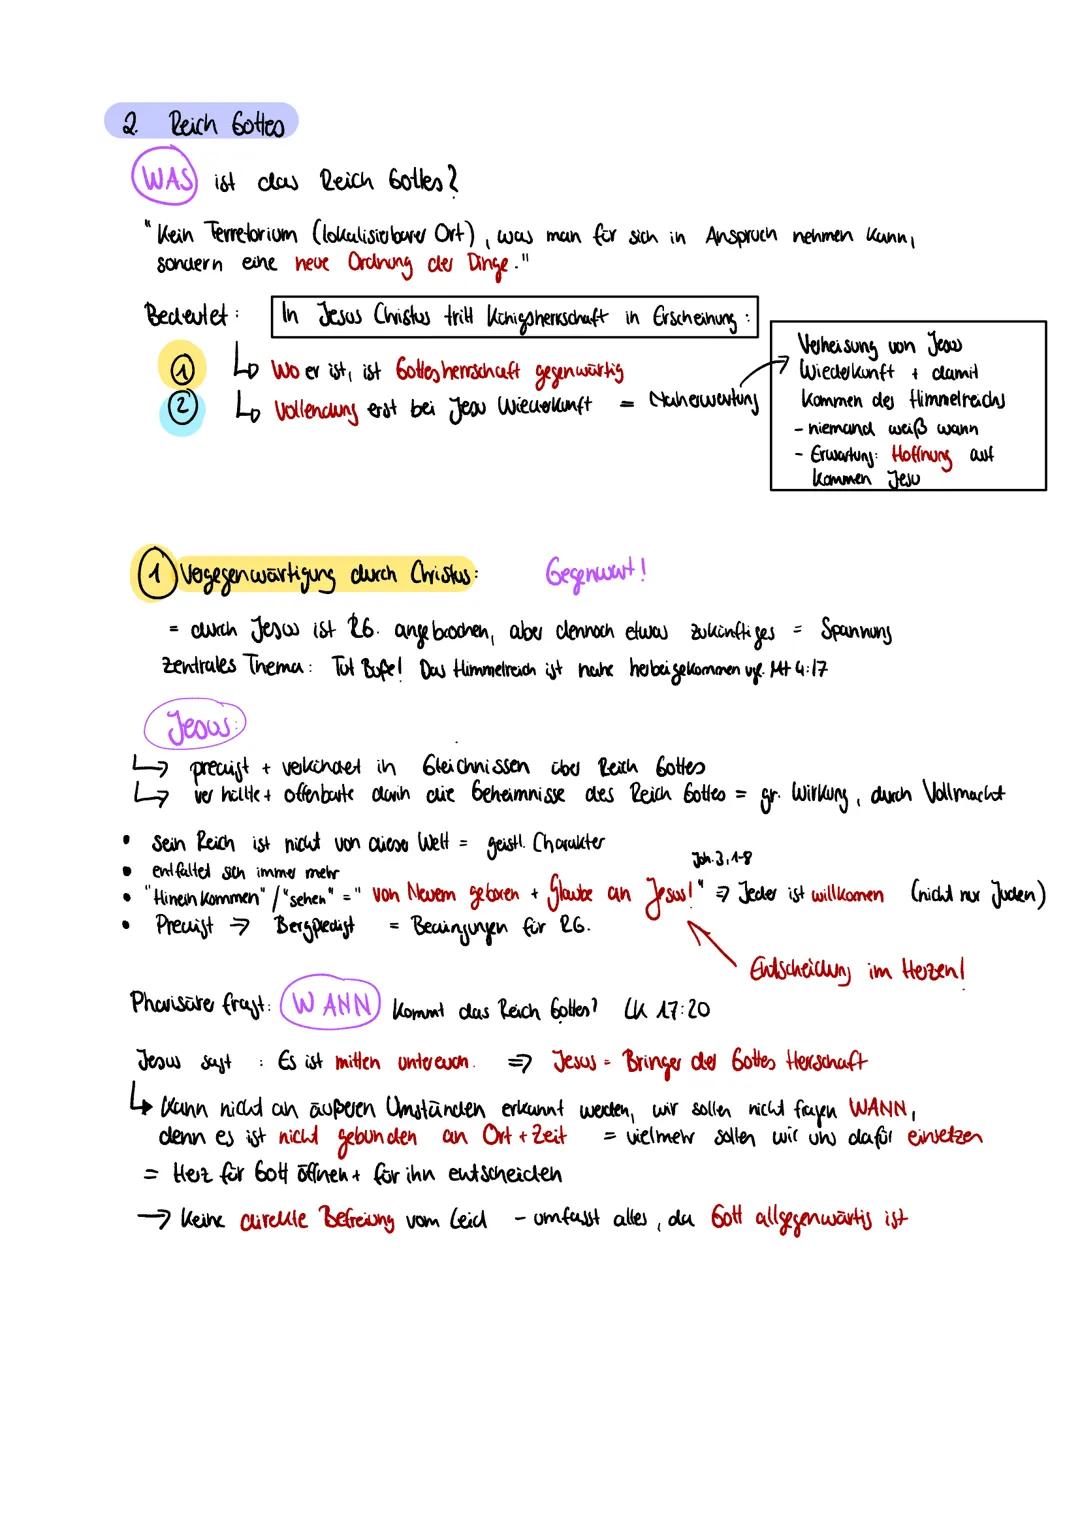 2. Reich Gottes
WAS ist das Reich Gottes?
"Kein Terretorium (lokalisierbarer Ort), was man für sich in Anspruch nehmen kann,
sondern eine neue Ordnung der Dinge."
Bedeutet: In Jesus Christus tritt Königsherrschaft in Erscheinung:
① ↳ Wo er ist, ist Gottesherrschaft gegenwärtig
② ↳ Vollendung erst bei Jesu Wiederkunft = Naherwartung
Verheisung von Jesus
Wiederkunft + damit
kommen des Himmelreichs
- niemand weiß wann
- Erwartung: Hoffnung auf
kommen Jesu
① Vergegenwärtigung durch Christus: Gegenwart!
= durch Jesus ist RG. angebrochen, aber dennoch etwas zukünftiges = Spannung
zentrales Thema: Tut Buße! Das Himmelreich ist nahe herbeigekommen vgl. Mt 4:17
Jesus:
↳ predigt + verkündet in Gleichnissen über Reich Gottes
↳ verhüllte + offenbarte darin die Geheimnisse des Reich Gottes = gr. Wirkung, durch Vollmacht
• sein Reich ist nicht von dieser Welt = geistl. Charakter
• entfaltet sich immer mehr
Joh. 3, 1-8
• "Hinein kommen" / "sehen" = "von Neuem geboren + Glaube an Jesus!" ⇒ Jeder ist willkomen (nicht nur Juden)
• Predigt → Bergpredigt = Bedingungen für RG.
Entscheidung im Herzen!
Pharisäer fragt: WANN kommt das Reich Gottes? LK 17:20
Jesus sagt : Es ist mitten unter euch. ⇒ Jesus = Bringer der Gottes Herschaft
↳ Kann nicht an äußeren Umständen erkannt werden, wir sollen nicht fragen WANN,
denn es ist nicht gebunden an Ort + Zeit = vielmehr sollen wir uns dafür einsetzen
= Herz für Gott öffnen + für ihn entscheiden
→ Keine direkte Befreiung vom Leid - umfasst alles, da Gott allgegenwärtig ist